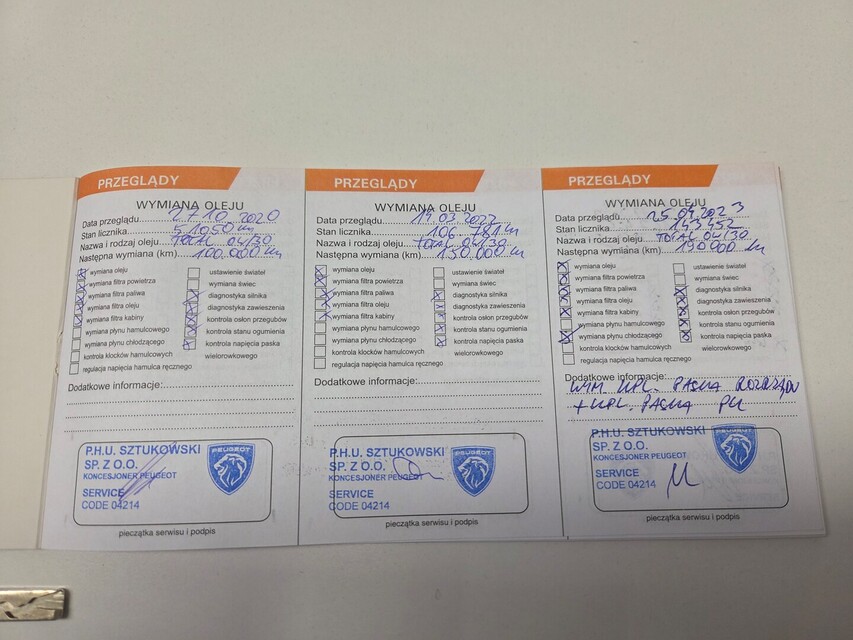 PRZEGLĄDY
WYMIANA OLEJU
Data przeglądu 27 10 2020
Stan licznika 51050 km
Nazwa i rodzaj oleju TOTAL 04/30
Następna wymiana (km) 100.000 km
wymiana oleju
wymiana filtra powietrza
wymiana filtra paliwa
wymiana filtra oleju
wymiana filtra kabiny
wymiana płynu hamulcowego
wymiana płynu chłodzącego
kontrola klocków hamulcowych
regulacja napięcia hamulca ręcznego
ustawienie świateł
wymiana świec
diagnostyka silnika
diagnostyka zawieszenia
kontrola osłon przegubów
kontrola stanu ogumienia
kontrola napięcia paska
wielorowkowego
Dodatkowe informacje:
P.H.U. SZTUKOWSKI
SP. Z O.O.
KONCESJONER PEUGEOT
SERVICE
CODE 04214
PEUGEOT
pieczątka serwisu i podpis
PRZEGLĄDY
WYMIANA OLEJU
Data przeglądu 14 03 2022
Stan licznika 106 781 km
Nazwa i rodzaj oleju TOTAL 04/30
Następna wymiana (km) 150.000 km
wymiana oleju
wymiana filtra powietrza
wymiana filtra paliwa
wymiana filtra oleju
wymiana filtra kabiny
wymiana płynu hamulcowego
wymiana płynu chłodzącego
kontrola klocków hamulcowych
regulacja napięcia hamulca ręcznego
ustawienie świateł
wymiana świec
diagnostyka silnika
diagnostyka zawieszenia
kontrola osłon przegubów
kontrola stanu ogumienia
kontrola napięcia paska
wielorowkowego
Dodatkowe informacje:
P.H.U. SZTUKOWSKI
SP. Z O.O.
KONCESJONER PEUGEOT
SERVICE
CODE 04214
PEUGEOT
pieczątka serwisu i podpis
PRZEGLĄDY
WYMIANA OLEJU
Data przeglądu 25.04.2023
Stan licznika 143 452
Nazwa i rodzaj oleju TOTAL 04/30
Następna wymiana (km) 190 000 km
wymiana oleju
wymiana filtra powietrza
wymiana filtra paliwa
wymiana filtra oleju
wymiana filtra kabiny
wymiana płynu hamulcowego
wymiana płynu chłodzącego
kontrola klocków hamulcowych
regulacja napięcia hamulca ręcznego
ustawienie świateł
wymiana świec
diagnostyka silnika
diagnostyka zawieszenia
kontrola osłon przegubów
kontrola stanu ogumienia
kontrola napięcia paska
wielorowkowego
Dodatkowe informacje:
WYM KPL. PASKA ROZRZĄDU
+ KPL. PASKA PK
P.H.U. SZTUKOWSKI
SP. Z O.O.
KONCESJONER PEUGEOT
SERVICE
CODE 04214
PEUGEOT
pieczątka serwisu i podpis